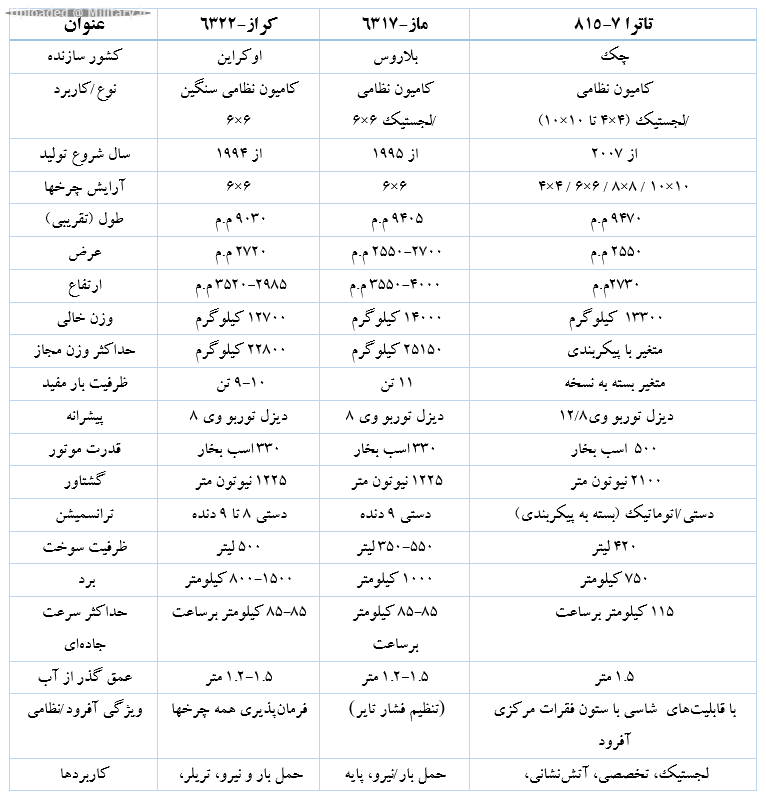 Uploaded @ Military.ir
عنوان	کراز-۶۳۲۲	ماز-۶۳۱۷	تاترا ۷-۸۱۵
کشور سازنده	اوکراین	بلاروس	چک
نوع/کاربرد	کامیون نظامی سنگین	کامیون نظامی	کامیون نظامی
۶×۶	/لجستیک ۶×۶	/لجستیک (۴×۴ تا ۱۰×۱۰)
سال شروع تولید	از ۱۹۹۴	از ۱۹۹۵	از ۲۰۰۷
آرایش چرخها	۶×۶	۶×۶	۴×۴ / ۶×۶ / ۸×۸ / ۱۰×۱۰
طول (تقریبی)	۹۰۳۰ م.م	۹۴۰۵ م.م	۹۴۷۰ م.م
عرض	۲۷۲۰ م.م	۲۵۵۰-۲۷۰۰ م.م	۲۵۵۰ م.م
ارتفاع	۲۹۸۵-۳۵۲۰ م.م	۳۵۵۰-۴۰۰۰ م.م	۲۷۳۰م.م
وزن خالی	۱۲۷۰۰ کیلوگرم	۱۴۰۰۰ کیلوگرم	۱۳۳۰۰ کیلوگرم
حداکثر وزن مجاز	۲۲۸۰۰ کیلوگرم	۲۵۱۵۰ کیلوگرم	متغیر با پیکربندی
ظرفیت بار مفید	۹-۱۰ تن	۱۱ تن	متغیر بسته به نسخه
پیشرانه	دیزل توربو وی ۸	دیزل توربو وی ۸	دیزل توربو وی۱۲/۸
قدرت موتور	۳۳۰ اسب بخار	۳۳۰ اسب بخار	۵۰۰ اسب بخار
گشتاور	۱۲۲۵ نیوتون متر	۱۲۲۵ نیوتون متر	۲۱۰۰ نیوتون متر
ترانسمیشن	دستی ۸ تا ۹ دنده	دستی ۹ دنده	دستی/اتوماتیک (بسته به پیکربندی)
ظرفیت سوخت	۵۰۰ لیتر	۳۵۰-۵۵۰ لیتر	۴۲۰ لیتر
برد	۸۰۰-۱۵۰۰ کیلومتر	۱۰۰۰ کیلومتر	۷۵۰ کیلومتر
حداکثر سرعت	۸۵-۸۵ کیلومتر برساعت	۸۵-۸۵ کیلومتر	۱۱۵ کیلومتر برساعت
جاده‌ای	برساعت
عمق گذر از آب	۱.۲-۱.۵ متر	۱.۲-۱.۵ متر	۱.۵ متر
ویژگی آفرود/نظامی	فرمان‌پذیری همه چرخها	(تنظیم فشار تایر)	با قابلیت‌های شاسی با ستون فقرات مرکزی
آفرود
کاربردها	حمل بار و نیرو، تریلر،	حمل بار/نیرو، پایه	لجستیک، تخصصی، آتش‌نشانی،